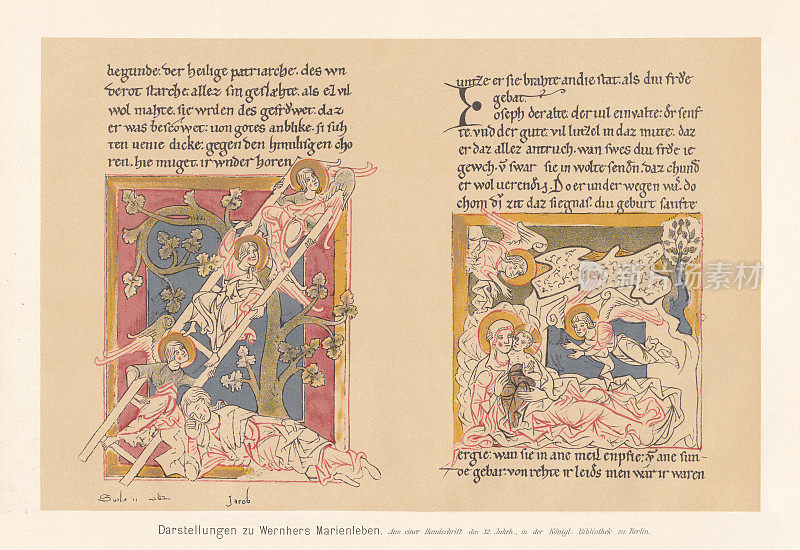 begunde: der heilige patriarche. des wn
derot starche: allez sin geslæhte. als er vil
wol mahte. sie wrden des gefrŏwet: daz
er was bescŏwet: uon gotes anblike. si suh
ten uenie dicke: gegen den himilisgen cho
ren. hie muget ir wnder horen
Jacob
untze er sie brahte an die stat. als diu frŏe
gebat.
Ioseph der alte. der uil einualte: der senf
te. vnd der gute. vil lutzel in daz mute. daz
er daz allez antruch. wan swes diu frŏe ie
gewch. vn swar sie in wolte senden. daz chund
er wol uerenden. Do er under wegen was. do
chom diu zit daz sie gnas. diu geburt sanfte
sergie: wan sie in ane meil enpfie: vn ane sun
de gebar: von rehte ir leides men war ir waren
Darstellungen zu Wernhers Marienleben. Aus einer Handschrift des 12. Jahrh., in der Königl. Bibliothek zu Berlin.